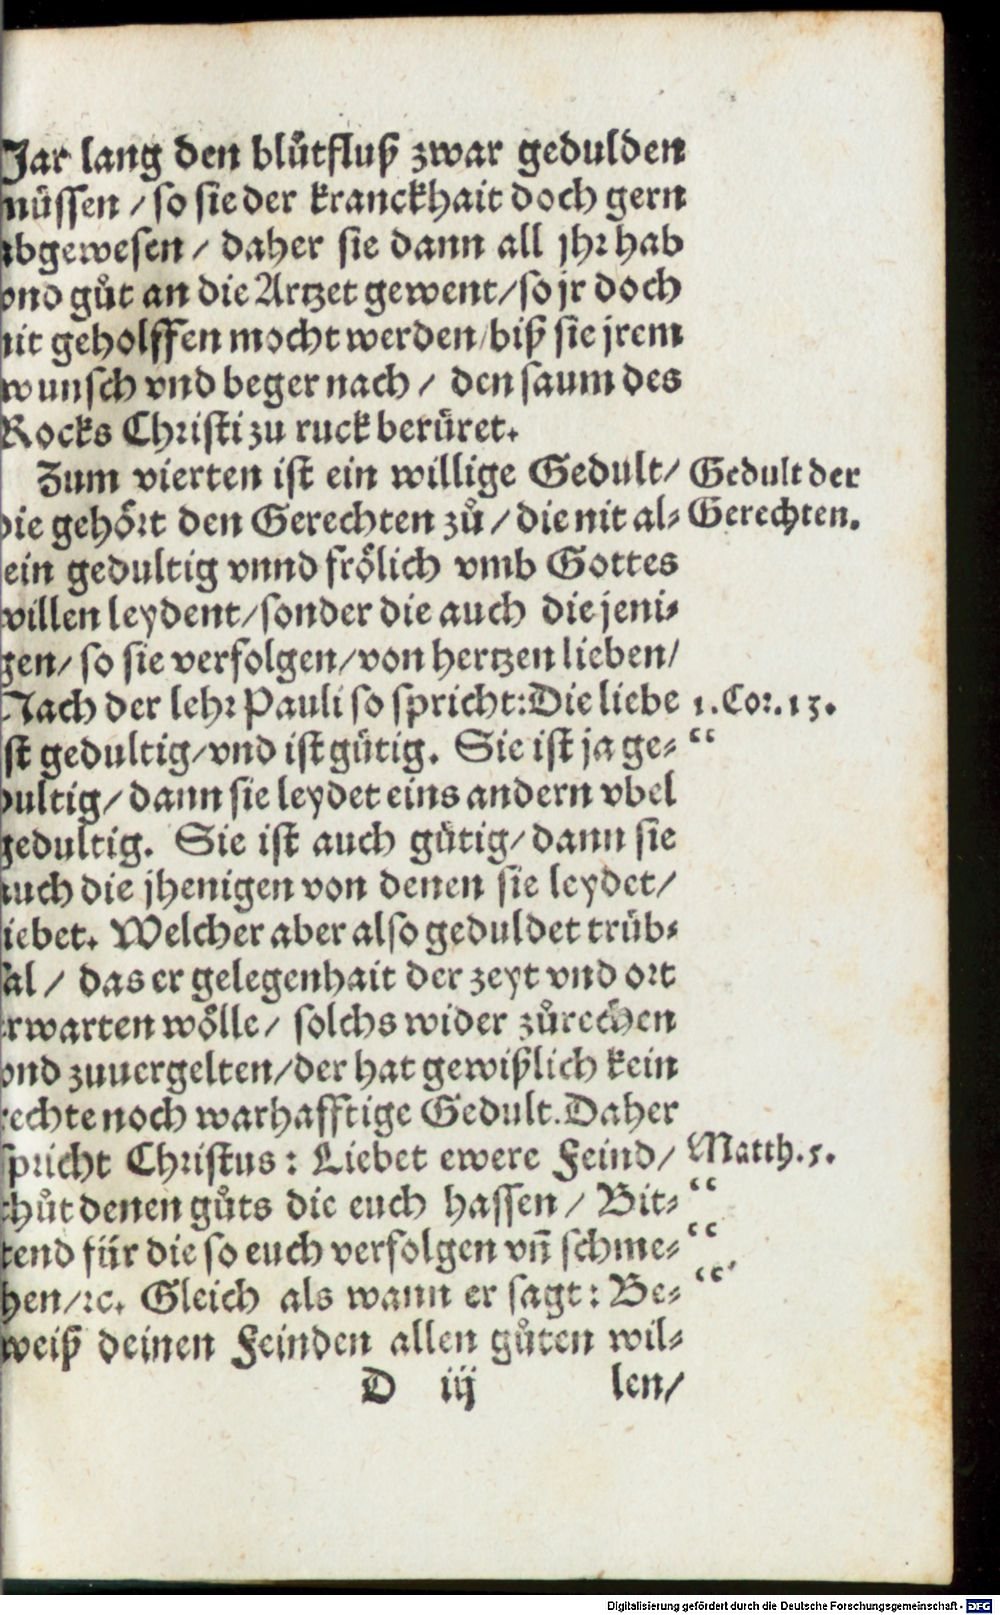 Jar lang den blůtfluß zwar gedulden
müssen / so sie der kranckhait doch gern
abgewesen / daher sie dann all jhr hab
vnd gůt an die Artzet gewent / so jr doch
nit geholffen mocht werden / biß sie jrem
wunsch vnd beger nach / den saum des
Rocks Christi zu ruck berüret.
Zum vierten ist ein willige Gedult /
Gedult der
die gehört den Gerechten zů / die nit al⸗
Gerechten.
lein gedultig vnnd frölich vmb Gottes
willen leydent / sonder die auch die jeni⸗
gen / so sie verfolgen / von hertzen lieben /
Nach der lehr Pauli so spricht: Die liebe
1. Cor. 13.
ist gedultig / vnd ist gütig. Sie ist ja ge⸗
“
dultig / dann sie leydet eins andern vbel
gedultig. Sie ist auch gütig / dann sie
auch die jhenigen von denen sie leydet /
liebet. Welcher aber also geduldet trüb⸗
sal / das er gelegenhait der zeyt vnd ort
erwarten wölle / solchs wider zůrechen
vnd zuuergelten / der hat gewißlich kein
rechte noch warhafftige Gedult. Daher
spricht Christus: Liebet ewere Feind /
Matth. 5.
thůt denen gůts die euch hassen / Bit⸗
“
tend für die so euch verfolgen vñ schme⸗
“
hen / ꝛc. Gleich als wann er sagt: Be⸗
“
weiß deinen Feinden allen gůten wil⸗
D iij
len /
Digitalisierung gefördert durch die Deutsche Forschungsgemeinschaft - DFG